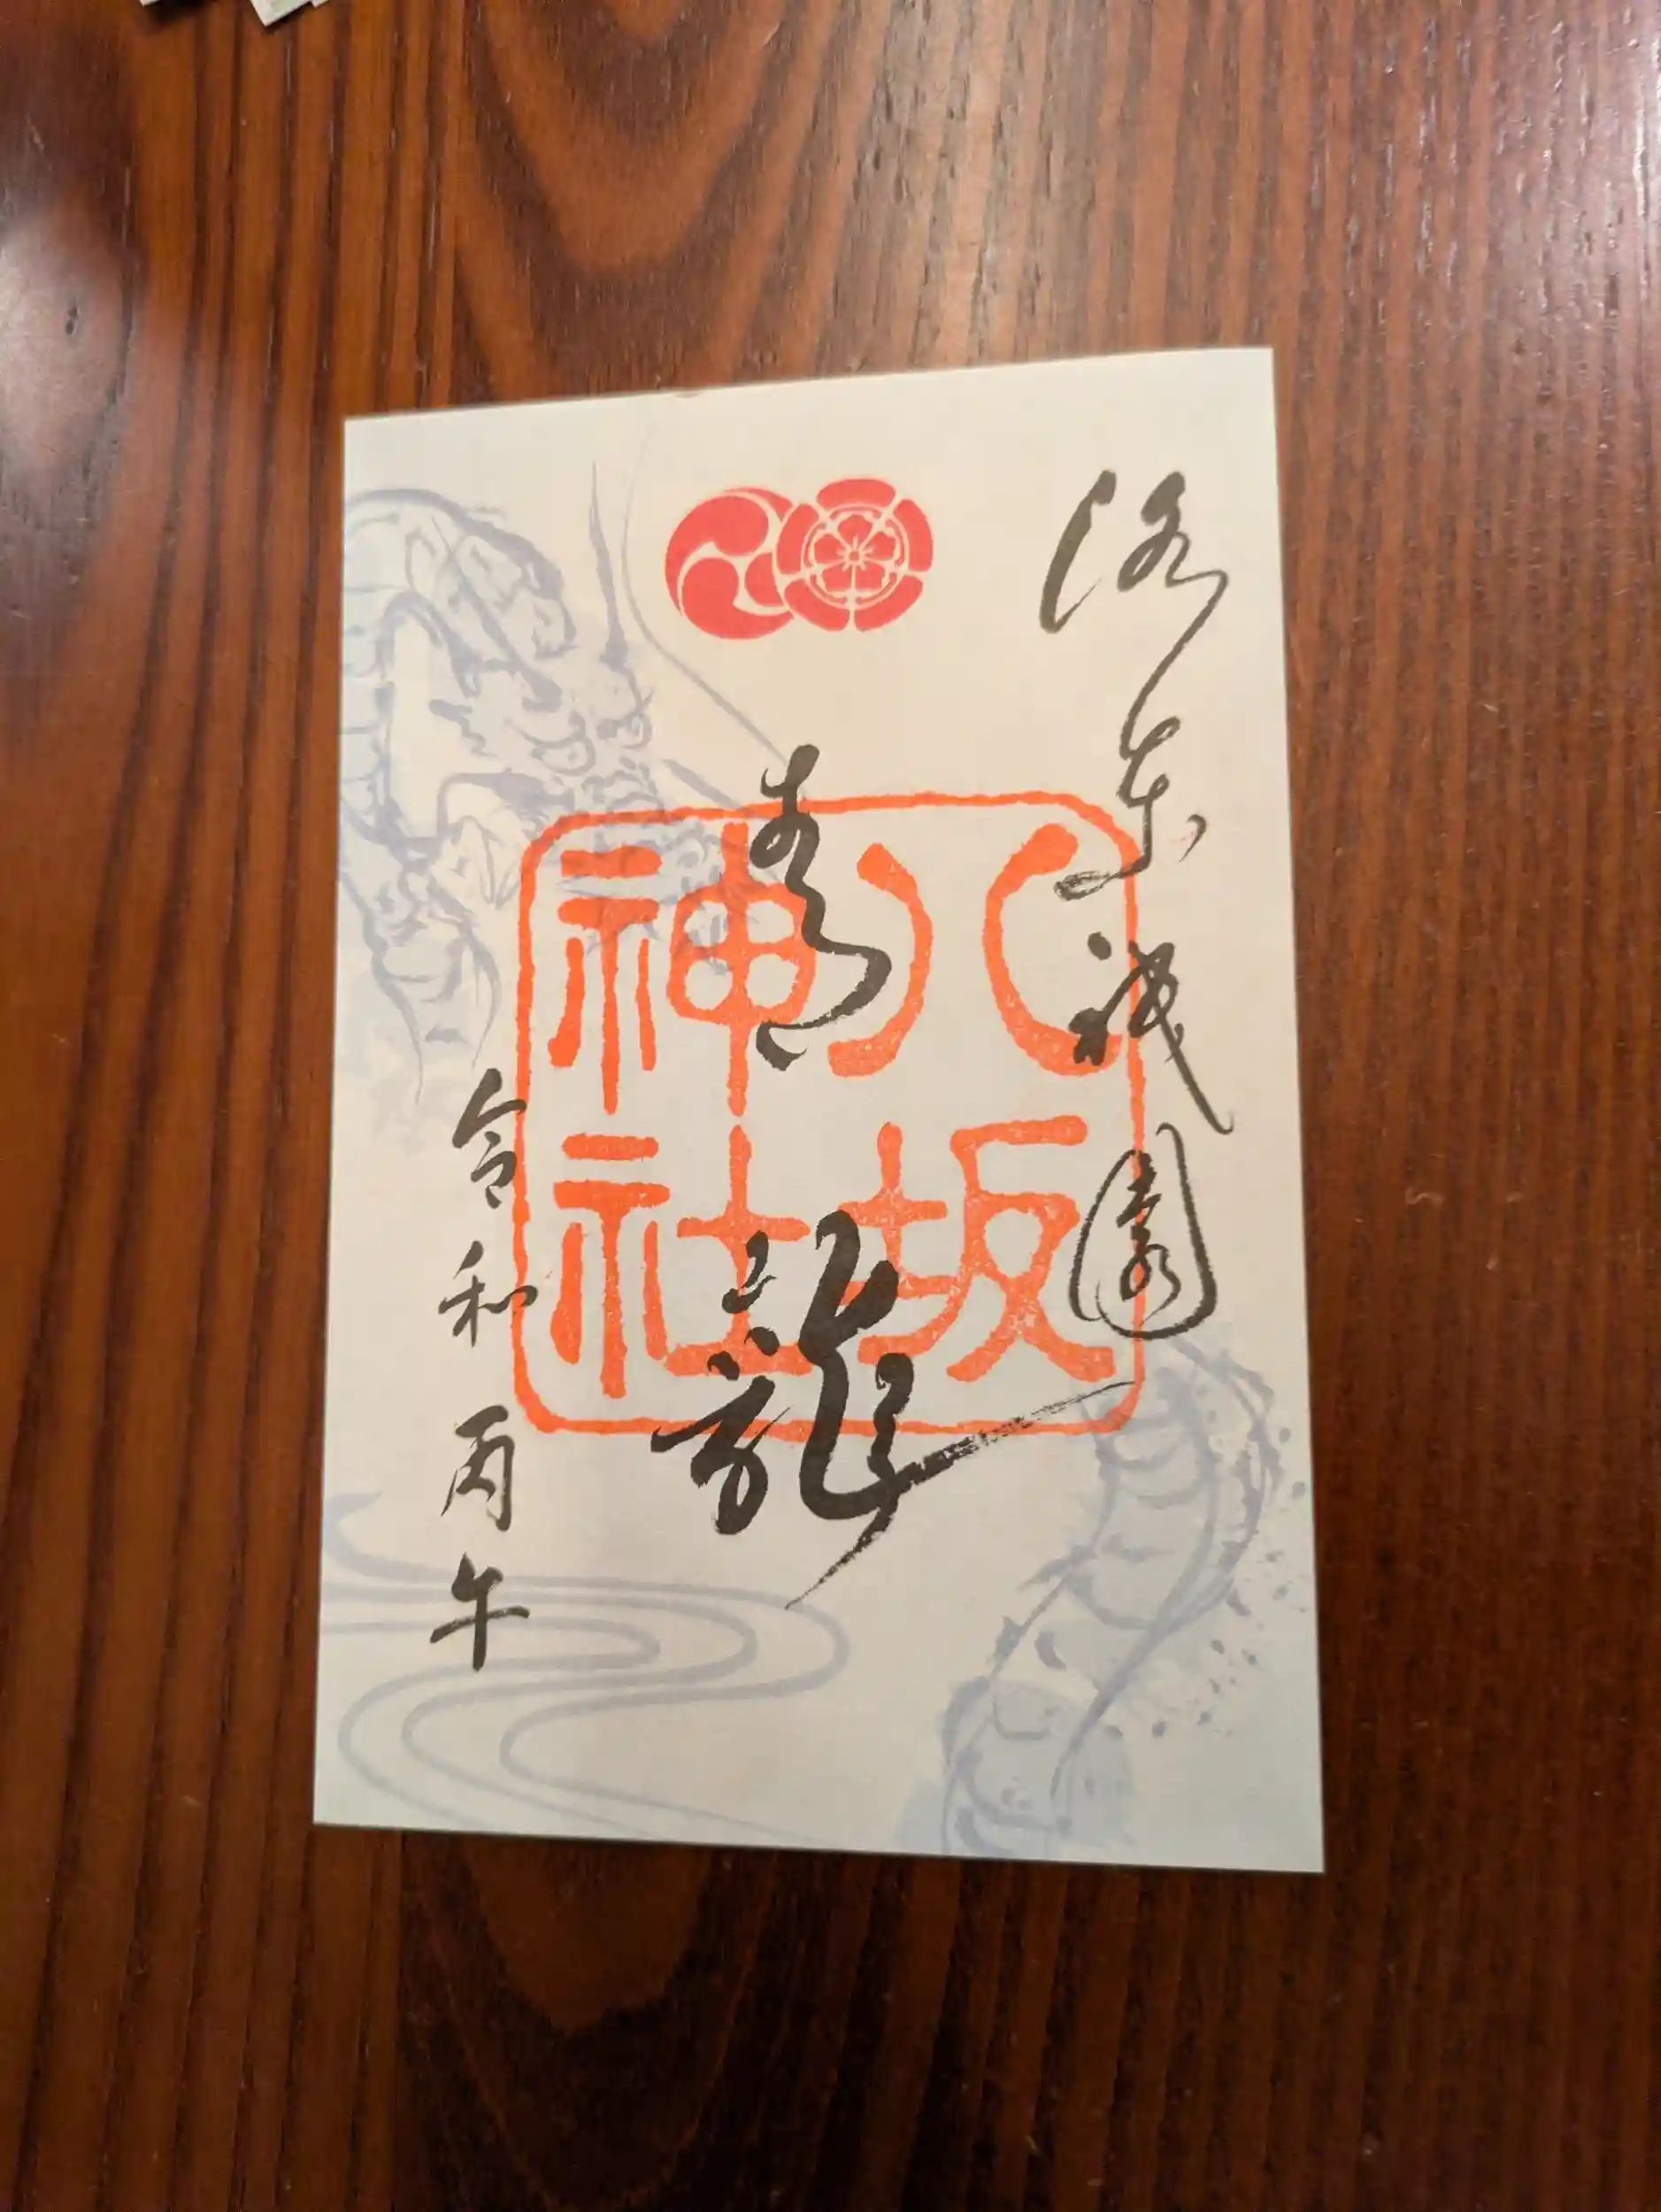 洛東祇園
青龍
八坂
神社
令和丙午